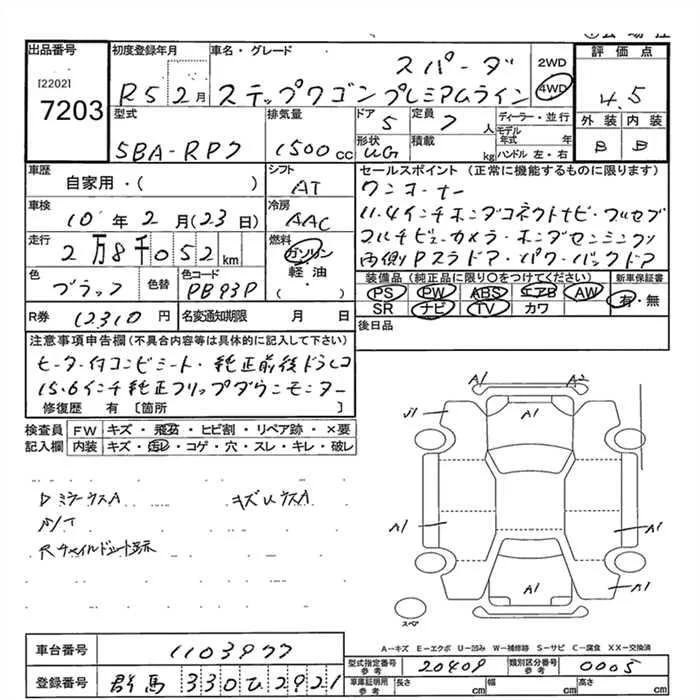 出品番号
[2202]
7203
初度登録年月
R5 2月
車名・グレード
スパーダ
ステップワゴンプレミアムライン
2WD
4WD
評価点
4.5
外装 内装
B B
型式
5BA-RP7
排気量
1500cc
ドア
5
定員
7人
ディーラー・並行
モデル年式 年
形状
UG
積載 kg
ハンドル 左・右
車歴
自家用・( )
シフト
AT
車検
10年2月(23日)
冷房
AAC
走行
2万8千052km
燃料
ガソリン
軽油
( )
色
ブラック
色替
色コード
PB93P
R券 12310円
名変通知期限 月 日
セールスポイント(正常に機能するものに限ります)
ワンオーナー
11.4インチホンダコネクトナビ・フルセグ
マルチビューカメラ・ホンダセンシング
両側Pスラドア・パワーバックドア
装備品(純正品に限り○をつけてください)
PS PW ABS エアB AW
SR ナビ TV カワ
新車保証書
有・無
後日品
注意事項申告欄(不具合内容等は具体的に記入して下さい)
ヒーター付コンビシート・純正前後ドラレコ
15.6インチ純正フリップダウンモニター
修復歴 有〔箇所 〕
検査員記入欄
FW キズ・飛石・ヒビ割・リペア跡・×要
内装 キズ・汚レ・コゲ・穴・スレ・キレ・破レ
DミラーウスA キズUウスA
Rチャイルドシート跡
A1 A2
A1
A1
A1 A1
A1 A1
スペア
A-キズ E-エクボ U-凹み W-補修跡 S-サビ C-腐食 XX-交換済
車台番号 1103977
登録番号 群馬 330 ひ 2921
型式指定番号 参考 20409
類別区分番号 参考 0005
車庫証明用 参考 長さ cm 幅 cm 高さ cm